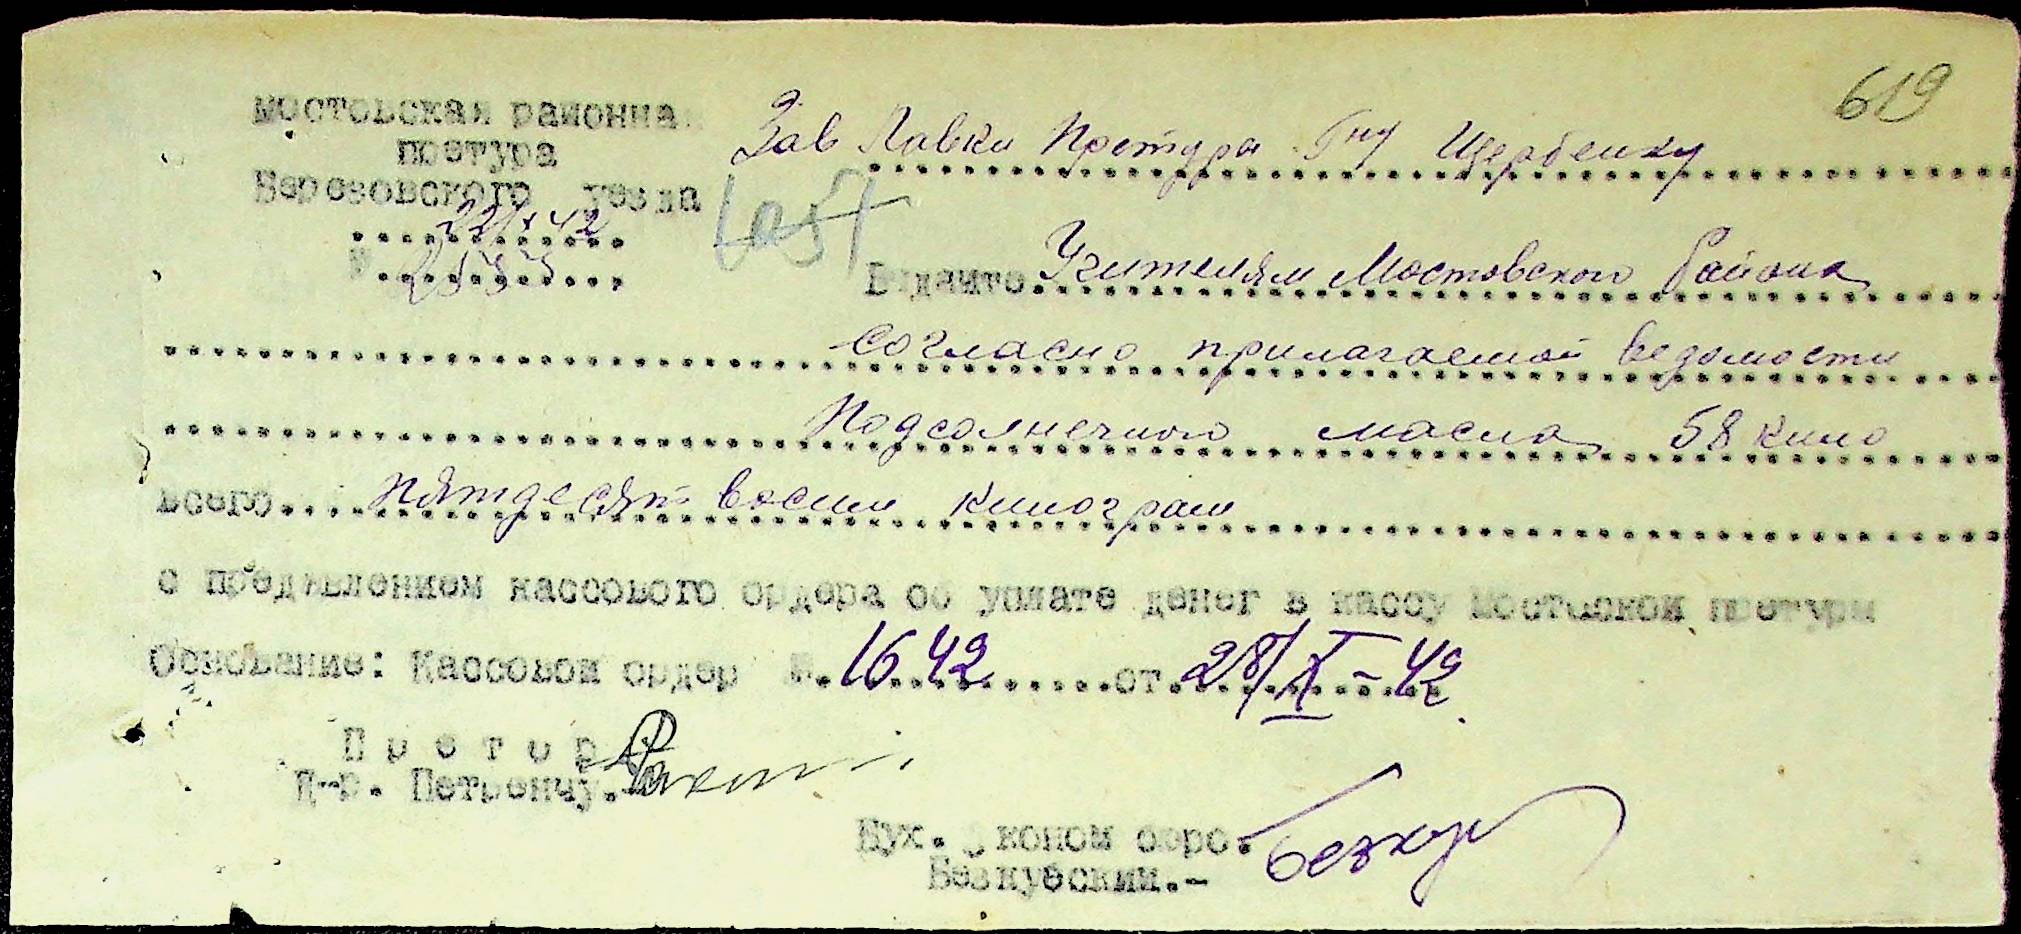 619
Мостовская районная
претура
Березовского уезда
Зав Лавки Претуры Гну Щербенку
Выдайте Учителям Мостовского Района
согласно прилагаемой ведомости
Подсолнечного масла 58 кило
Всего Пятдесят восим килограм
с предявлением кассового ордера об уплате денег в кассу Мостовской претуры
Основание: Кассовый ордер № 1642 от 28/X-42
Претор
Д-р. Петренчу.
Бух. Эконом бюро.
Безкубский.-